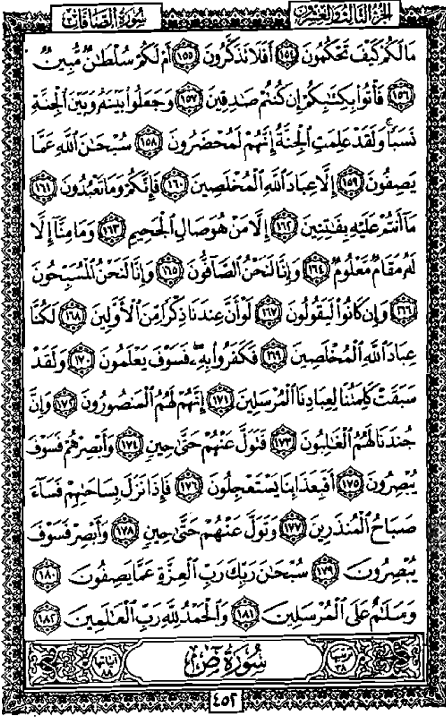 سُورَةُ الصَّافَّاتِ الجزء الثالث والعشرون
مَا لَكُمْ كَيْفَ تَحْكُمُونَ ١٥٤ أَفَلَا تَذَكَّرُونَ ١٥٥ أَمْ لَكُمْ سُلْطَانٌ مُّبِينٌ
١٥٦ فَأْتُوا بِكِتَابِكُمْ إِن كُنتُمْ صَادِقِينَ ١٥٧ وَجَعَلُوا بَيْنَهُ وَبَيْنَ الْجِنَّةِ
نَسَبًا وَلَقَدْ عَلِمَتِ الْجِنَّةُ إِنَّهُمْ لَمُحْضَرُونَ ١٥٨ سُبْحَانَ اللَّهِ عَمَّا
يَصِفُونَ ١٥٩ إِلَّا عِبَادَ اللَّهِ الْمُخْلَصِينَ ١٦٠ فَإِنَّكُمْ وَمَا تَعْبُدُونَ ١٦١
مَا أَنتُمْ عَلَيْهِ بِفَاتِنِينَ ١٦٢ إِلَّا مَنْ هُوَ صَالِ الْجَحِيمِ ١٦٣ وَمَا مِنَّا إِلَّا
لَهُ مَقَامٌ مَّعْلُومٌ ١٦٤ وَإِنَّا لَنَحْنُ الصَّافُّونَ ١٦٥ وَإِنَّا لَنَحْنُ الْمُسَبِّحُونَ
١٦٦ وَإِن كَانُوا لَيَقُولُونَ ١٦٧ لَوْ أَنَّ عِندَنَا ذِكْرًا مِّنَ الْأَوَّلِينَ ١٦٨ لَكُنَّا
عِبَادَ اللَّهِ الْمُخْلَصِينَ ١٦٩ فَكَفَرُوا بِهِ فَسَوْفَ يَعْلَمُونَ ١٧٠ وَلَقَدْ
سَبَقَتْ كَلِمَتُنَا لِعِبَادِنَا الْمُرْسَلِينَ ١٧١ إِنَّهُمْ لَهُمُ الْمَنصُورُونَ ١٧٢ وَإِنَّ
جُندَنَا لَهُمُ الْغَالِبُونَ ١٧٣ فَتَوَلَّ عَنْهُمْ حَتَّى حِينٍ ١٧٤ وَأَبْصِرْهُمْ فَسَوْفَ
يُبْصِرُونَ ١٧٥ أَفَبِعَذَابِنَا يَسْتَعْجِلُونَ ١٧٦ فَإِذَا نَزَلَ بِسَاحَتِهِمْ فَسَاءَ
صَبَاحُ الْمُنذَرِينَ ١٧٧ وَتَوَلَّ عَنْهُمْ حَتَّى حِينٍ ١٧٨ وَأَبْصِرْ فَسَوْفَ
يُبْصِرُونَ ١٧٩ سُبْحَانَ رَبِّكَ رَبِّ الْعِزَّةِ عَمَّا يَصِفُونَ ١٨٠
وَسَلَامٌ عَلَى الْمُرْسَلِينَ ١٨١ وَالْحَمْدُ لِلَّهِ رَبِّ الْعَالَمِينَ ١٨٢
ترتيبها ٣٨ سُورَةُ صٓ آياتها ٨٨
٤٥٢